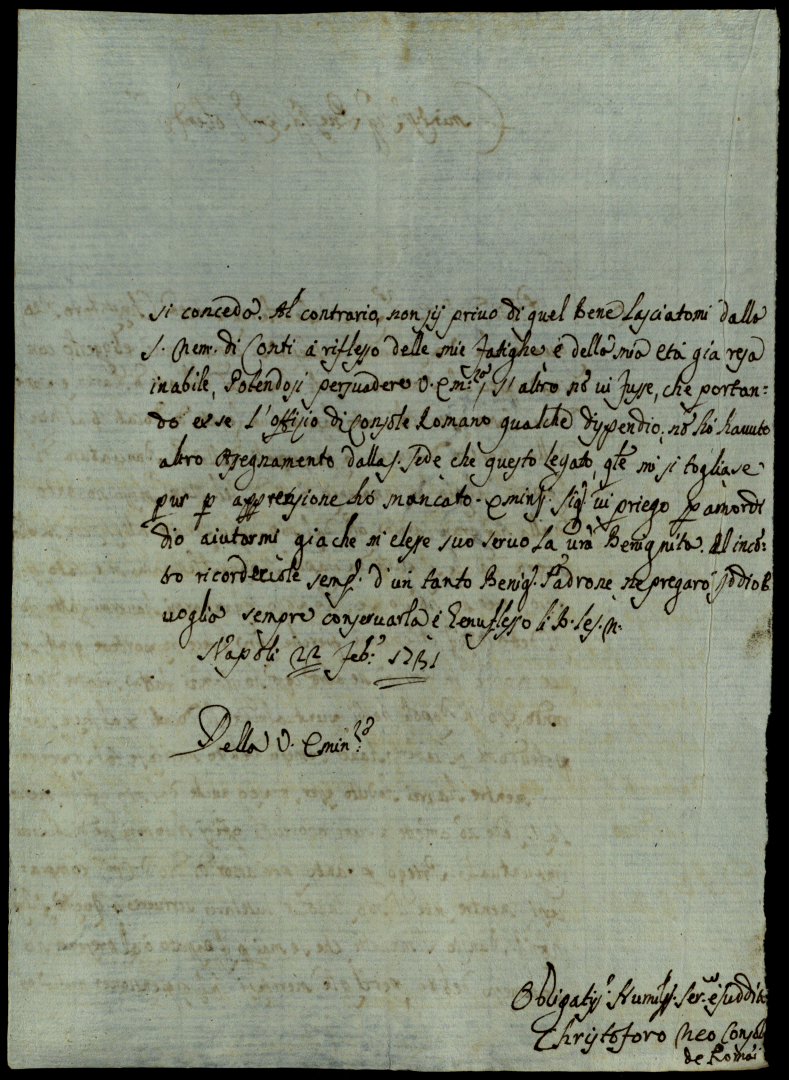 si conceda. Al contrario, non sij privo di quel Bene Lasciatomi dalla
S. Mem. di Conti a riflesso delle mie fatighe é della mia età gia resa
inabile, Potendosi persuadere V. Emza, Si altro nō vi fusse, che portan=
do esse l'offizio di Console Romano qualche dispendio, nō hò havuto
altro Assegnamento dalla S. Sede che questo legato, qle mi si togliase
pur p apprensione hò mancato. Eminss. Sigr. vi priego p amor di
dio aiutarmi gia che mi elesse suo servo La vrā Benignità. Al incō=
tro ricordevole semp. d'un tanto Benig. Padrone ne pregarò Iddio
voglia sempre conservarla é Genuflesso li B. les. m.
Napoli 22 Feb. 1731
Della V. Emin.za
Obligatiss. Humiliss. Ser. é suddito
Christoforo Meo Console
de Romai